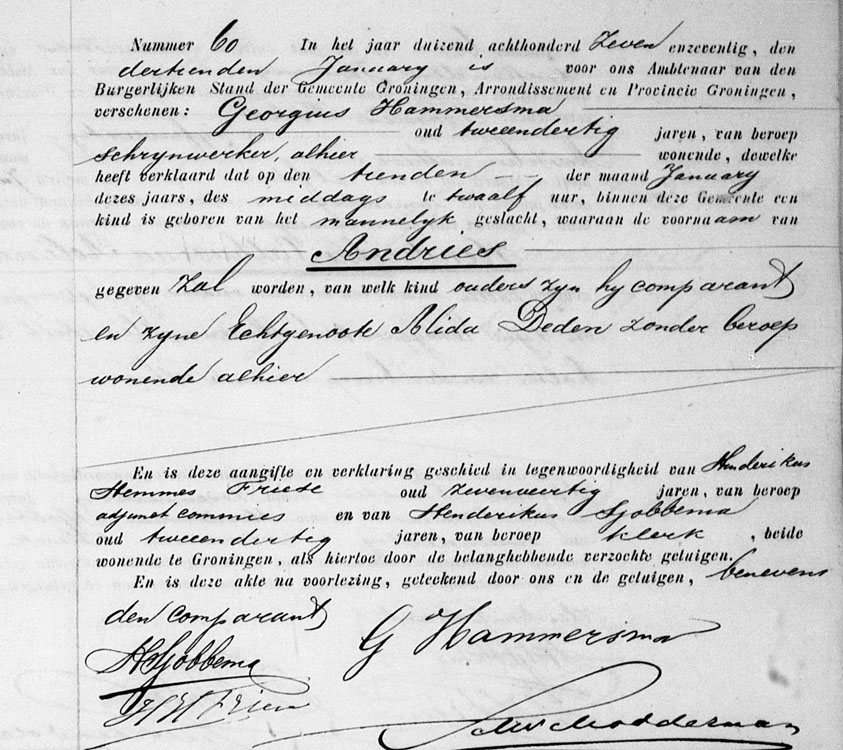 Nummer 60 In het jaar duizend achthonderd Zeven enzeventig, den
dertienden January is voor ons Ambtenaar van den
Burgerlijken Stand der Gemeente Groningen, Arrondissement en Provincie Groningen,
verschenen: Georgius Hammersma
oud tweeendertig jaren, van beroep
schrynwerker, alhier wonende, dewelke
heeft verklaard dat op den tienden der maand January
dezes jaars, des middags te twaalf uur, binnen deze Gemeente een
kind is geboren van het mannelyk geslacht, waaraan de voornaam van
Andries
gegeven zal worden, van welk kind ouders zyn hy comparant
en zyne Echtgenoote Alida Deden zonder beroep
wonende alhier
En is deze aangifte en verklaring geschied in tegenwoordigheid van Henderikus
Hemmes Friese oud zevenveertig jaren, van beroep
adjunct commies en van Henderikus Sjobbema
oud tweeendertig jaren, van beroep klerk, beide
wonende te Groningen, als hiertoe door de belanghebbende verzochte getuigen.
En is deze akte na voorlezing, geteekend door ons en de getuigen, benevens
den comparant
G Hammersma
HSjobbema